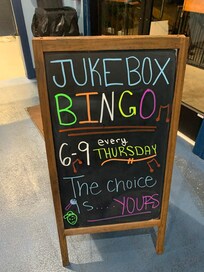 JUKEBOX
BINGO
6-9 every
THURSDAY
The choice
is... YOURS